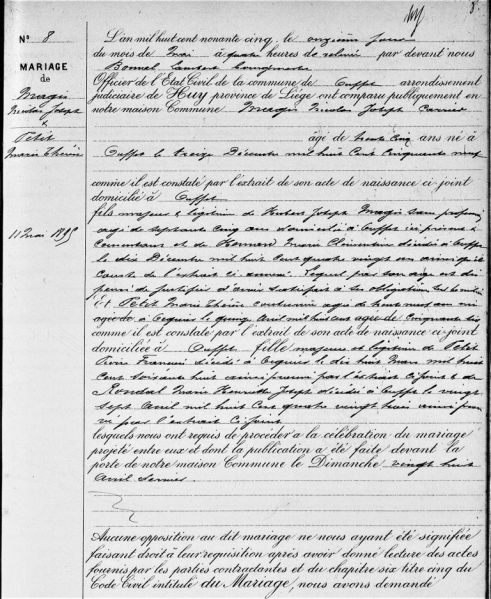 N° 8
MARIAGE
de
Magis
Nicolas Joseph
&
Petit
Marie Thérèse
11 Mai 1895
L'an mil huit cent nonante cinq, le onzième jour
du mois de Mai à quatre heures de relevée par devant nous
Bonnel Lambert
Officier de l'Etat Civil de la commune de Ouffet arrondissement
judiciaire de Huy province de Liège ont comparu publiquement en
notre maison Commune Magis Nicolas Joseph Carrier
âgé de trente cinq ans né à
Ouffet le treize Décembre mil huit Cent Cinquante neuf
comme il est constaté par l'extrait de son acte de naissance ci-joint
domicilié à Ouffet
fils majeur & légitime de Hubert Joseph Magis sans profession
agé de septante cinq ans domicilié à Ouffet ici présent &
Consentant et de Marie Clémentine décédée à Ouffet
le dix Décembre mil huit Cent quatre vingt
l'extrait ci annexé. Lequel par son age est dis
pensé de justifier d'avoir satisfait à ses obligations
Et Petit Marie Thérèse couturière agée de
le quinze Avril mil huit cent
comme il est constaté par l'extrait de son acte de naissance ci-joint
domiciliée à Ouffet fille majeure et légitime de Petit
François décédé à le dix huit Mars mil huit
Cent soixante huit ainsi prouvé par l'extrait Ci joint & de
Rondal Marie Henriette Joseph décédée à Ouffet le vingt
sept Avril mil huit Cent quatre vingt trois ainsi prou
vé par l'extrait Ci joint
lesquels nous ont requis de procéder à la célébration du mariage
projeté entre eux et dont la publication a été faite devant la
porte de notre maison Commune le Dimanche vingt huit
Avril dernier
Aucune opposition au dit mariage ne nous ayant été signifiée
faisant droit à leur requisition après avoir donné lecture des actes
fournis par les parties contractantes et du chapitre six titre cinq du
Code Civil intitulé du Mariage, nous avons demandé